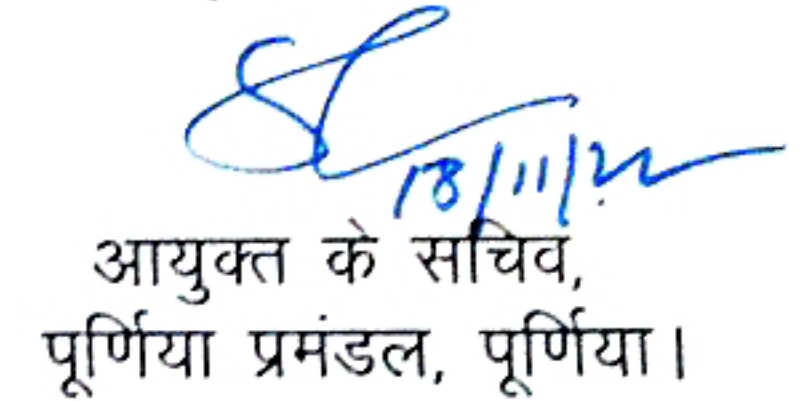 18/11/22
आयुक्त के सचिव,
पूर्णिया प्रमंडल, पूर्णिया।